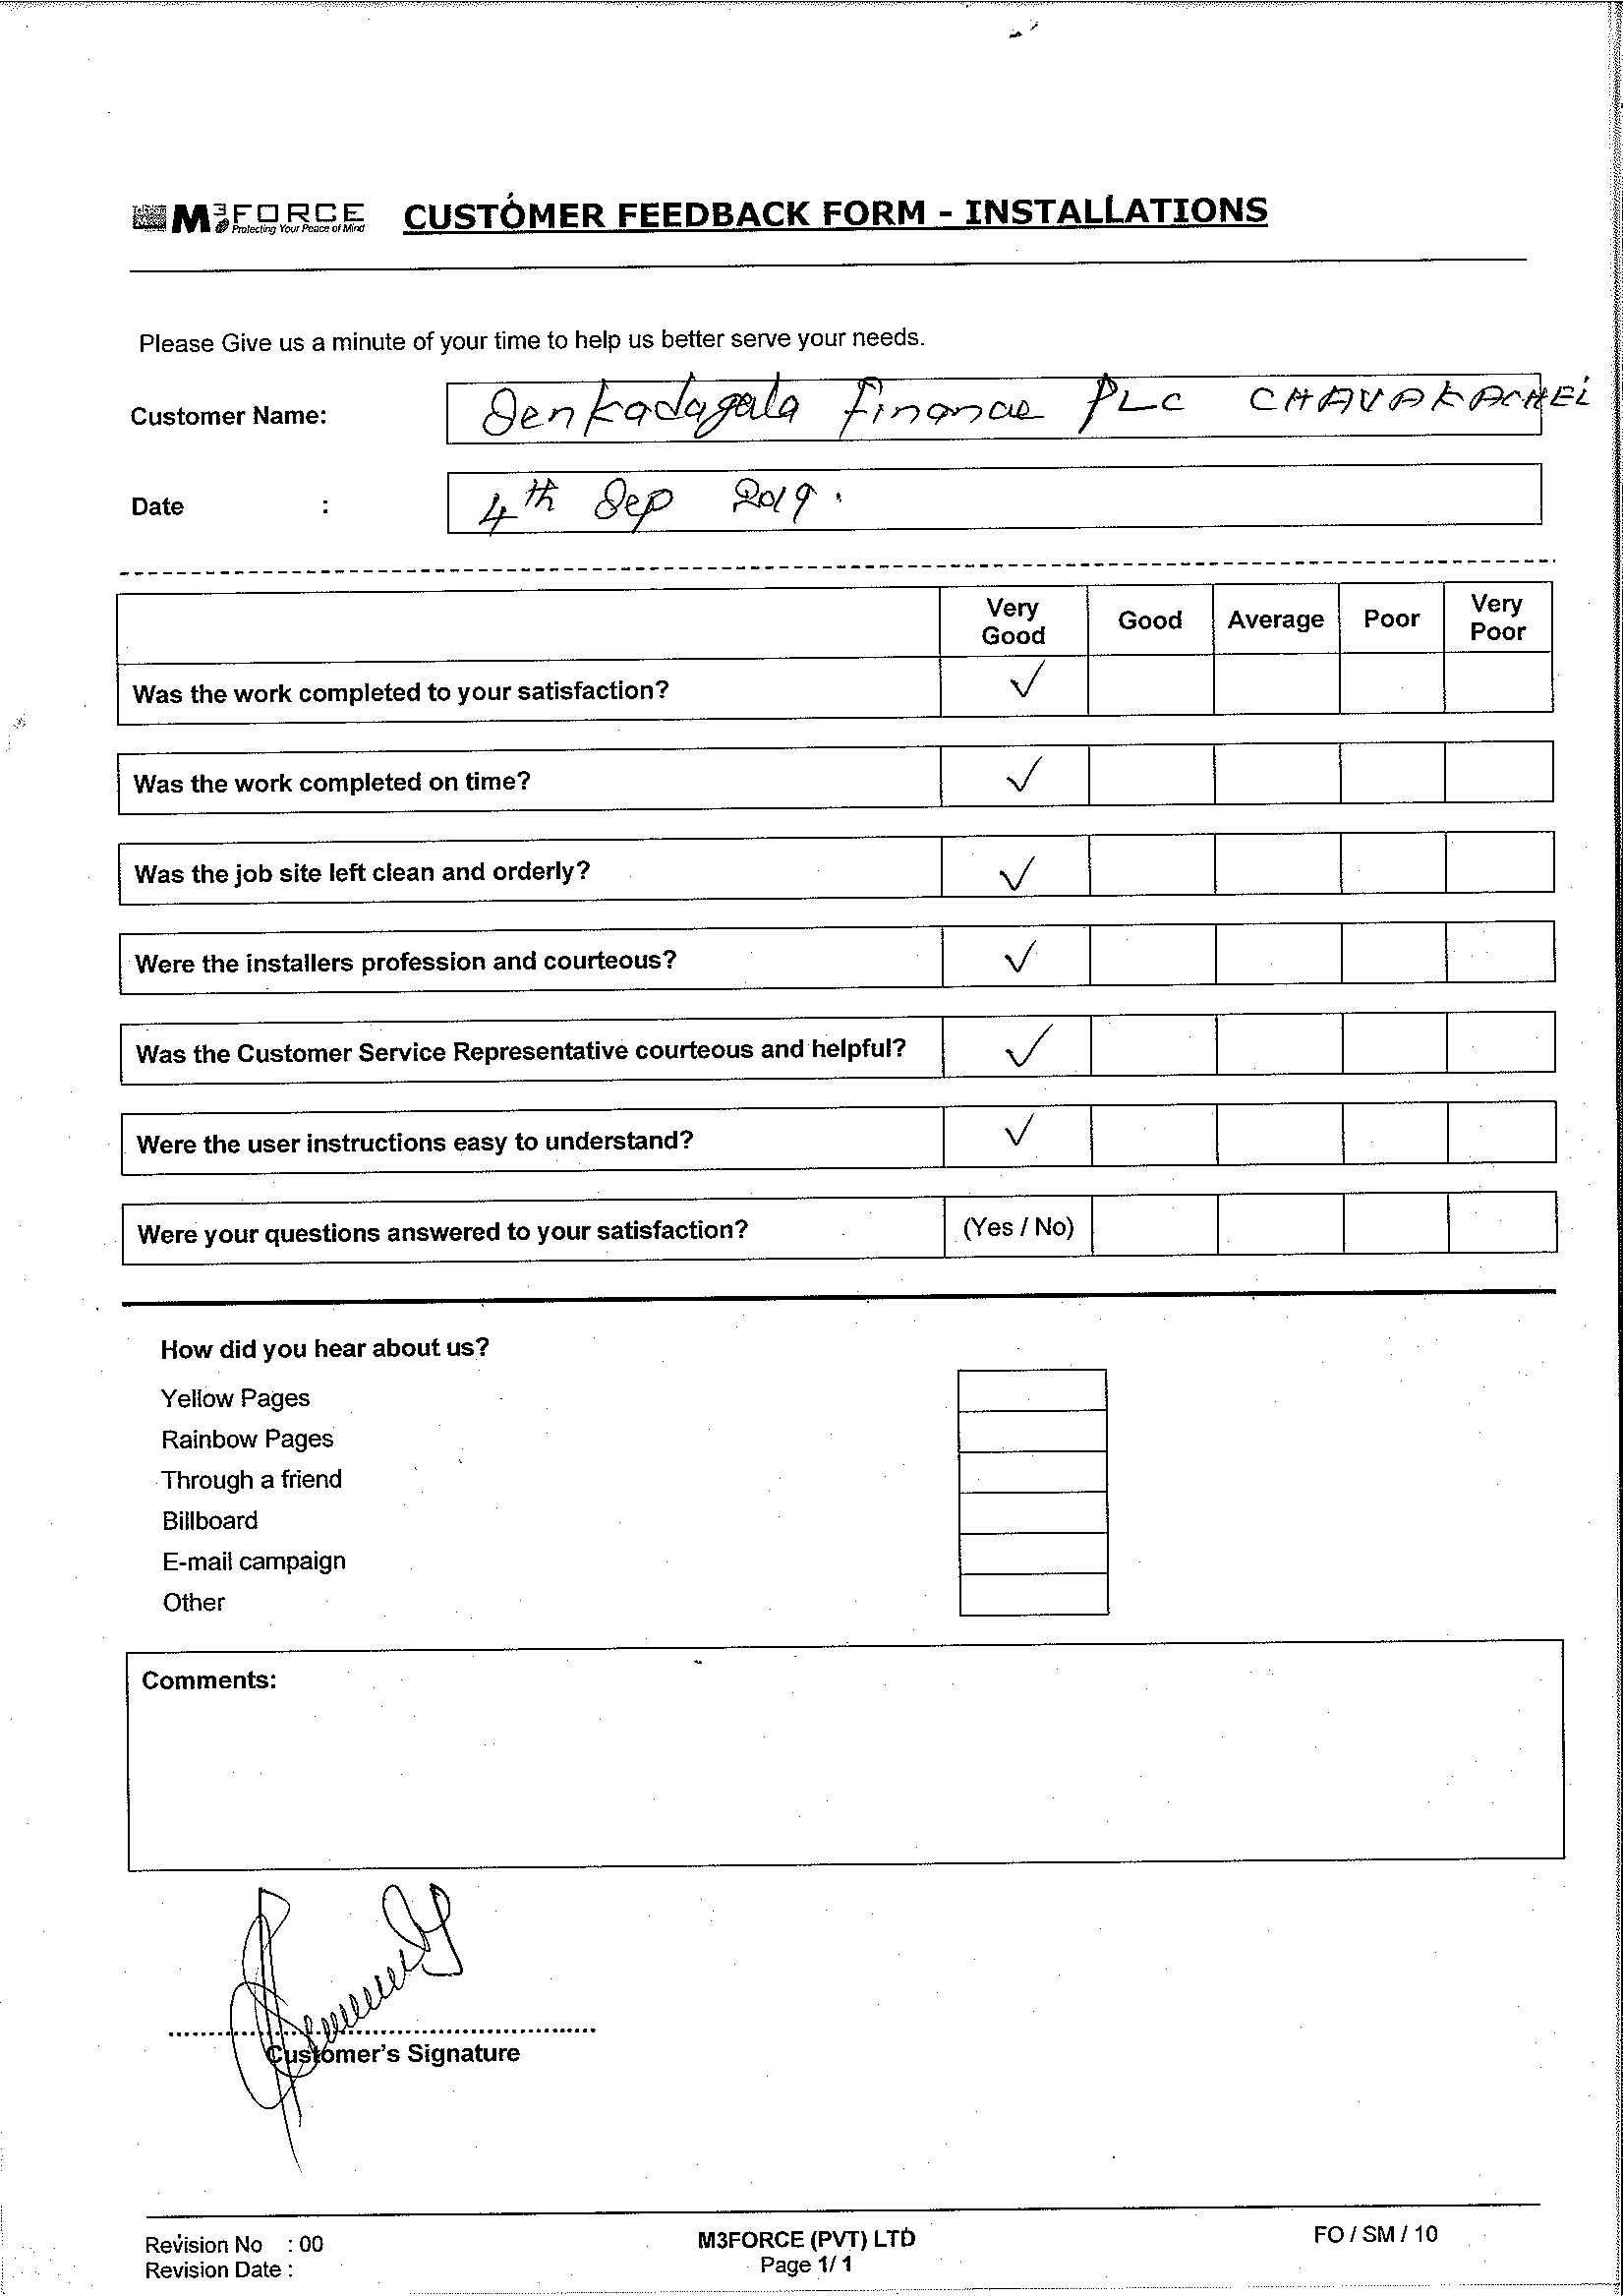 M3FORCE CUSTOMER FEEDBACK FORM - INSTALLATIONS
Protecting Your Peace of Mind
Please Give us a minute of your time to help us better serve your needs.
Customer Name: Senkadagala Finance PLC CHAVAKACHEi
Date : 4th Sep 2019.
Very Good Good Average Poor Very Poor
Was the work completed to your satisfaction? ✓
Was the work completed on time? ✓
Was the job site left clean and orderly? ✓
Were the installers profession and courteous? ✓
Was the Customer Service Representative courteous and helpful? ✓
Were the user instructions easy to understand? ✓
Were your questions answered to your satisfaction? (Yes / No)
How did you hear about us?
Yellow Pages
Rainbow Pages
Through a friend
Billboard
E-mail campaign
Other
Comments:
Customer's Signature
Revision No : 00 M3FORCE (PVT) LTD FO / SM / 10
Revision Date : Page 1/ 1